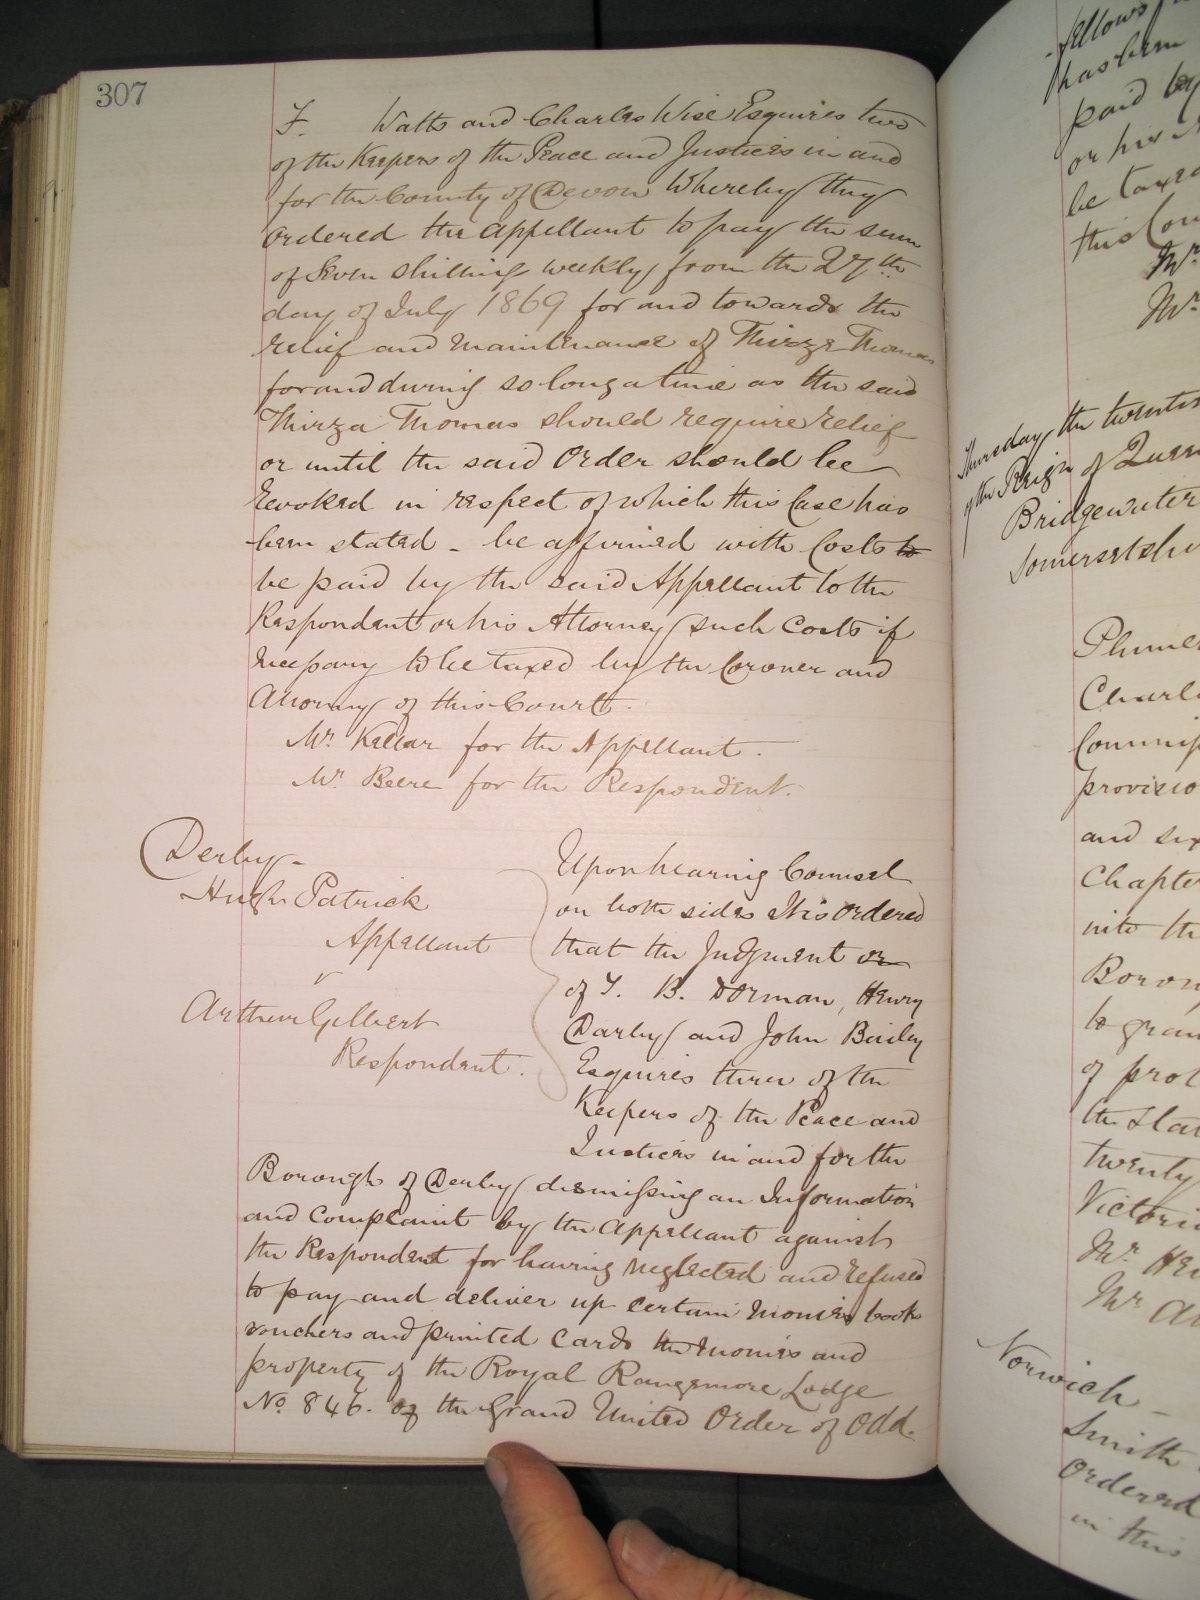 307
F. Watts and Charles Wise Esquires two
of the Keepers of the Peace and Justices in and
for the County of Devon Whereby they
ordered the Appellant to pay the sum
of Seven shilling weekly from the 27th
day of July 1869 for and towards the
relief and maintenance of Thirza Thomas
for and during so long a time as the said
Thirza Thomas should require relief
or until the said Order should be
revoked in respect of which this Case has
been stated - be affirmed with Costs to
be paid by the said Appellant to the
Respondent or his Attorney such Costs if
necessary to be taxed by the Coroner and
Attorney of this Court.
Mr. Kellar for the Appellant.
Mr. Beere for the Respondent.
Derby -
Hugh Patrick
Appellant
v
Arthur Gilbert
Respondent.
Upon hearing Counsel
on both sides It is Ordered
that the Judgment or
of T. B. Dorman, Henry
Darby and John Bailey
Esquires three of the
Keepers of the Peace and
Justices in and for the
Borough of Derby dismissing an Information
and Complaint by the Appellant against
the Respondent for having neglected and refused
to pay and deliver up certain monies books
vouchers and printed Cards the monies and
property of the Royal Rangemore Lodge
No. 846. of the Grand United Order of Odd.
fellows
has been
paid by
or his
be taxed
this Cou
Mr
Mr
Thursday the twenties
of the Reign of Queen
Bridgewater
Somersetshi
Plumer
Charl
Commiss
provisio
and six
Chapte
into the
Borou
to gran
of prot
the Stat
twenty
Victoria
Mr. Hen
Mr A
Norwich -
Smith
Ordered
in this